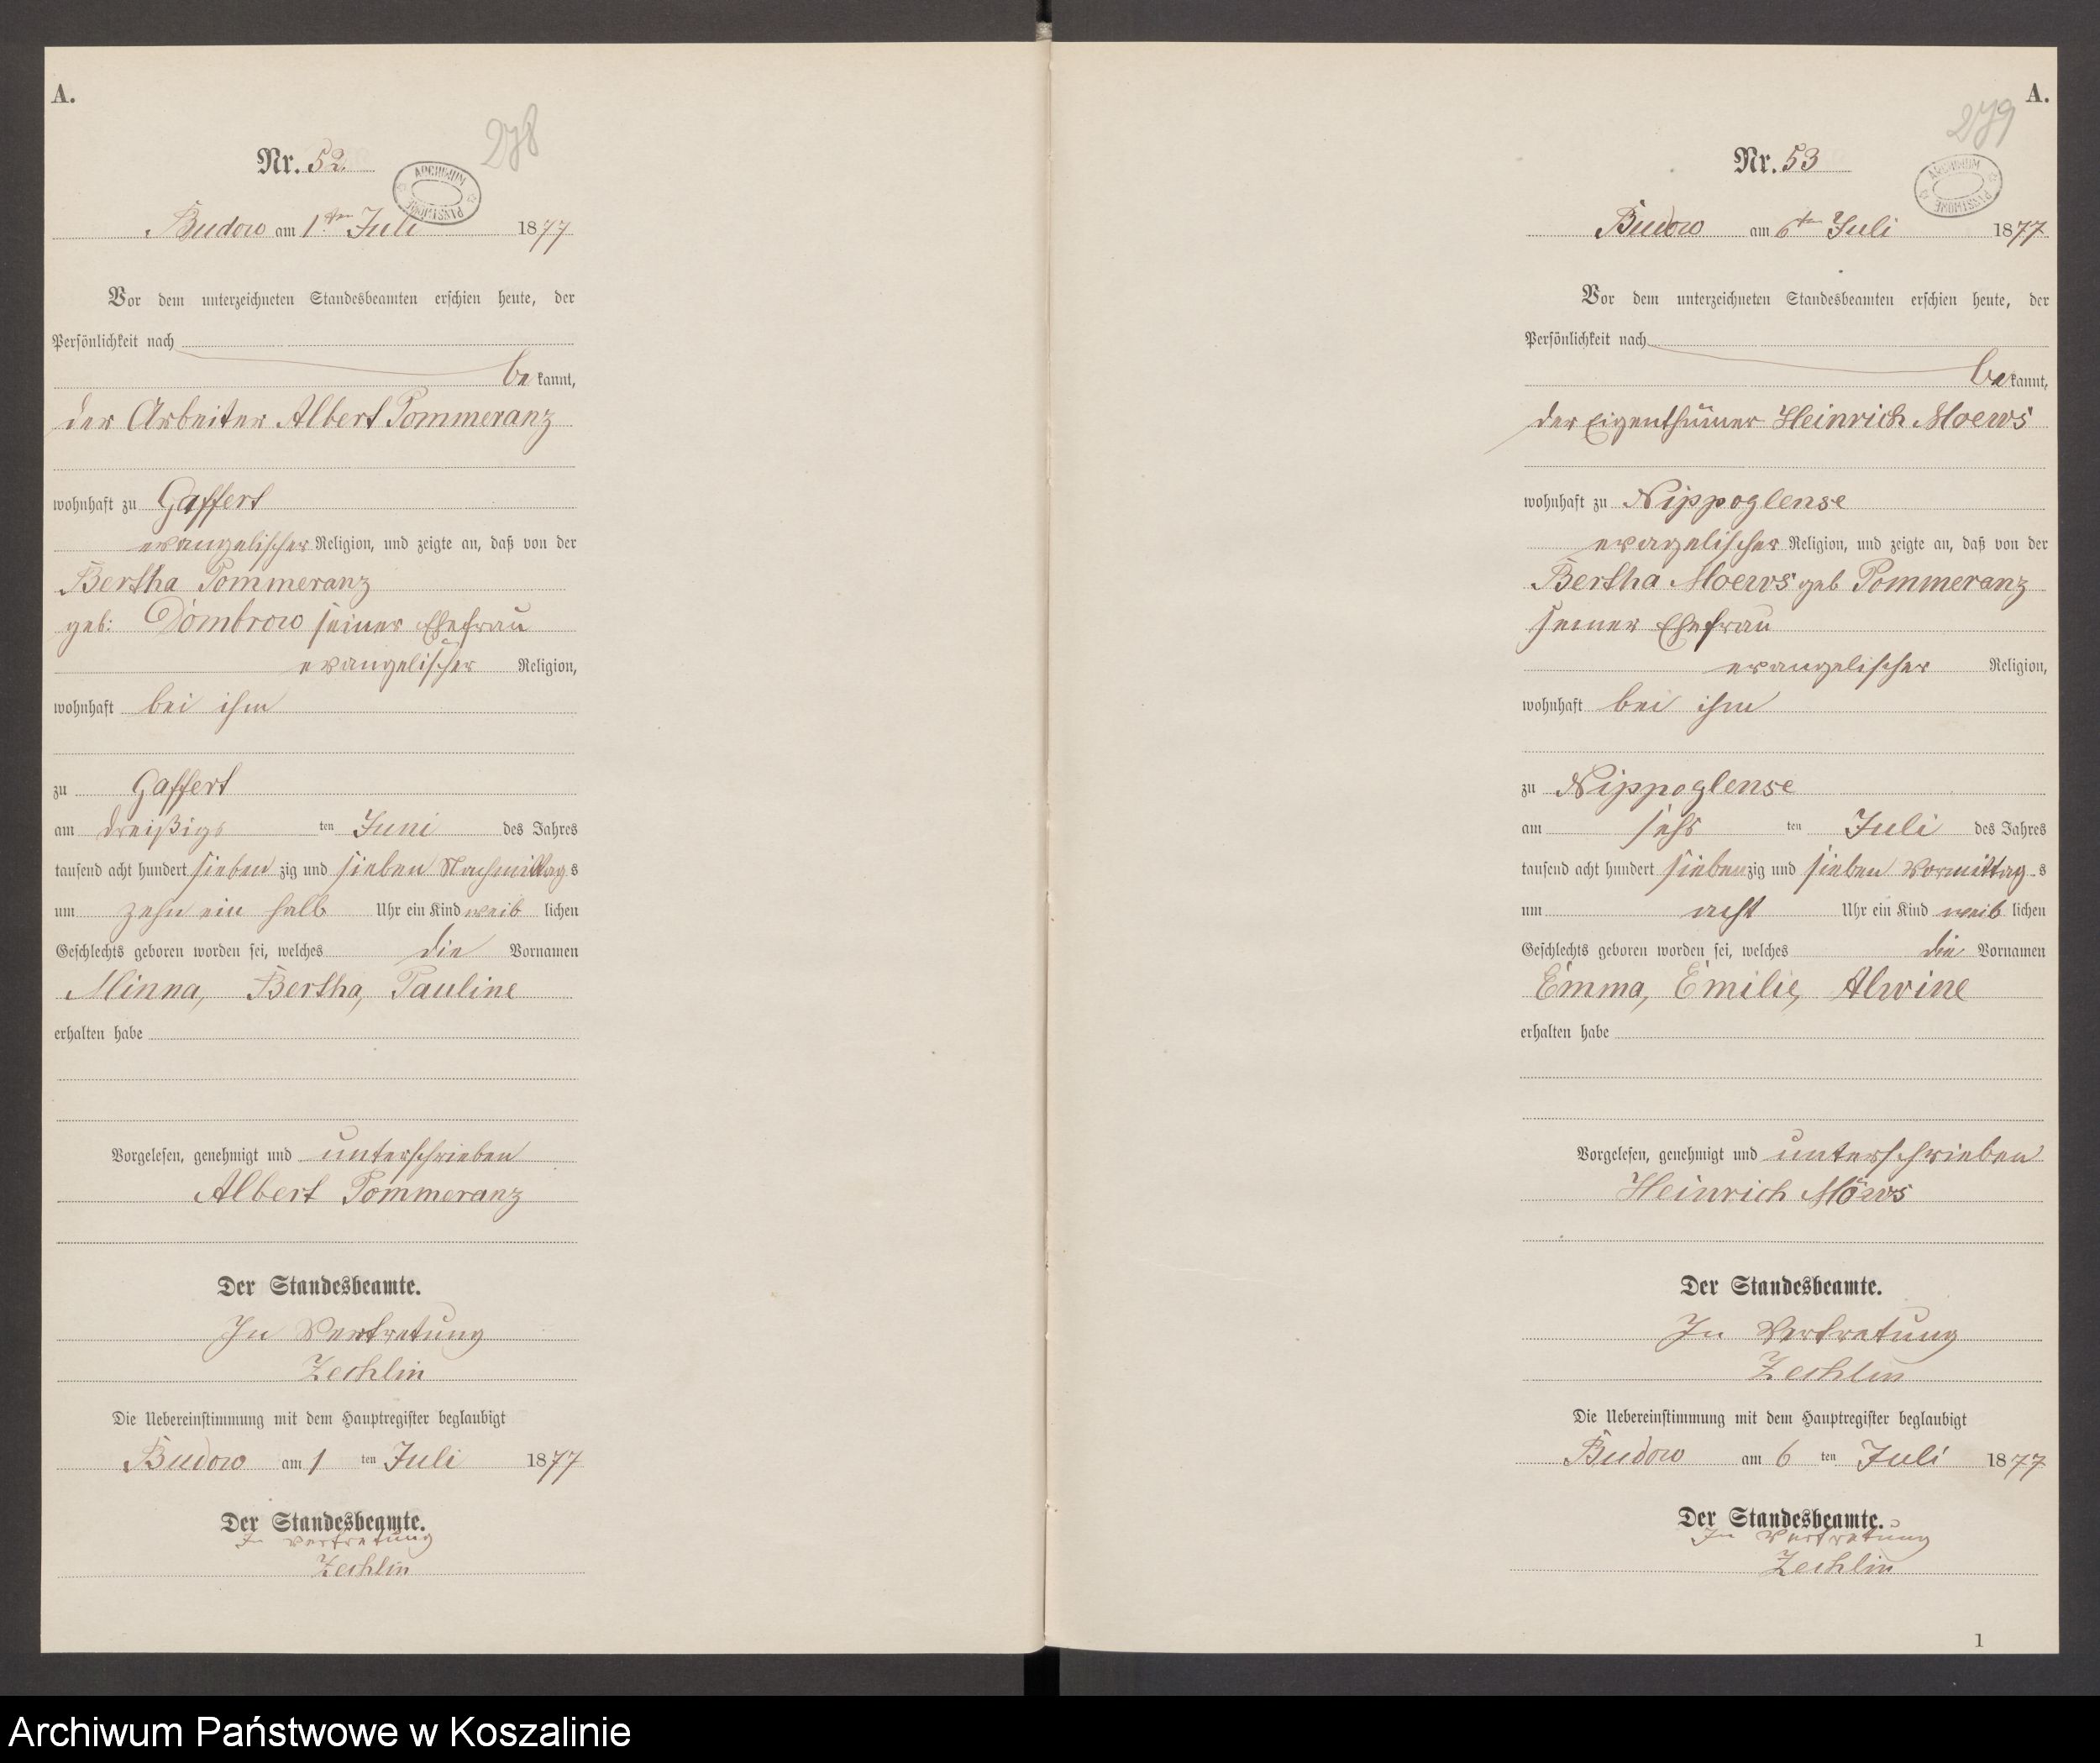 A.
278
Nr. 52
ARCHIWUM PAŃSTWOWE
Budow am 1ten Juli 1877
Vor dem unterzeichneten Standesbeamten erschien heute, der
Persönlichkeit nach
be kannt,
der Arbeiter Albert Pommeranz
wohnhaft zu Gaffert
evangelischer Religion, und zeigte an, daß von der
Bertha Pommeranz
geb: Dombrow seiner Ehefrau
evangelischer Religion,
wohnhaft bei ihm
zu Gaffert
am dreißigs ten Juni des Jahres
tausend acht hundert sieben zig und sieben Nachmittag s
um zehn ein halb Uhr ein Kind weib lichen
Geschlechts geboren worden sei, welches die Vornamen
Minna, Bertha, Pauline
erhalten habe
Vorgelesen, genehmigt und unterschrieben
Albert Pommeranz
Der Standesbeamte.
In Vertretung
Zechlin
Die Uebereinstimmung mit dem Hauptregister beglaubigt
Budow am 1 ten Juli 1877
Der Standesbeamte.
In Vertretung
Zechlin
A.
279
Nr. 53
ARCHIWUM PAŃSTWOWE
Budow am 6ten Juli 1877
Vor dem unterzeichneten Standesbeamten erschien heute, der
Persönlichkeit nach
be kannt,
der Eigenthümer Heinrich Moews
wohnhaft zu Nippoglense
evagelischer Religion, und zeigte an, daß von der
Bertha Moews geb Pommeranz
seiner Ehefrau
evangelischer Religion,
wohnhaft bei ihm
zu Nippoglense
am sehs ten Juli des Jahres
tausend acht hundert sieben zig und sieben Vormittag s
um acht Uhr ein Kind weib lichen
Geschlechts geboren worden sei, welches die Vornamen
Emma, Emilie, Alwine
erhalten habe
Vorgelesen, genehmigt und unterschrieben
Heinrich Möws
Der Standesbeamte.
In Vertretung
Zechlin
Die Uebereinstimmung mit dem Hauptregister beglaubigt
Budow am 6 ten Juli 1877
Der Standesbeamte.
In Vertretung
Zechlin
1
Archiwum Państwowe w Koszalinie